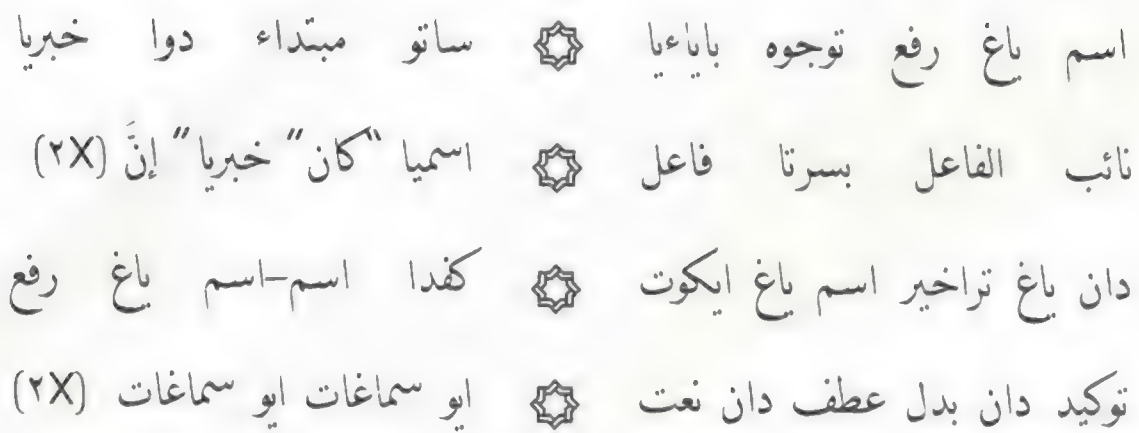 اسم ياغ رفع توجوه باياءيا ۞ ساتو مبتداء دوا خبريا
نائب الفاعل بسرتا فاعل ۞ اسميا "كان" خبريا "إنَّ (٢X)
دان ياغ تراخير اسم ياغ ايكوت ۞ كفدا اسم-اسم ياغ رفع
توكيد دان بدل عطف دان نعت ۞ ايو سماغات ايو سماغات (٢X)